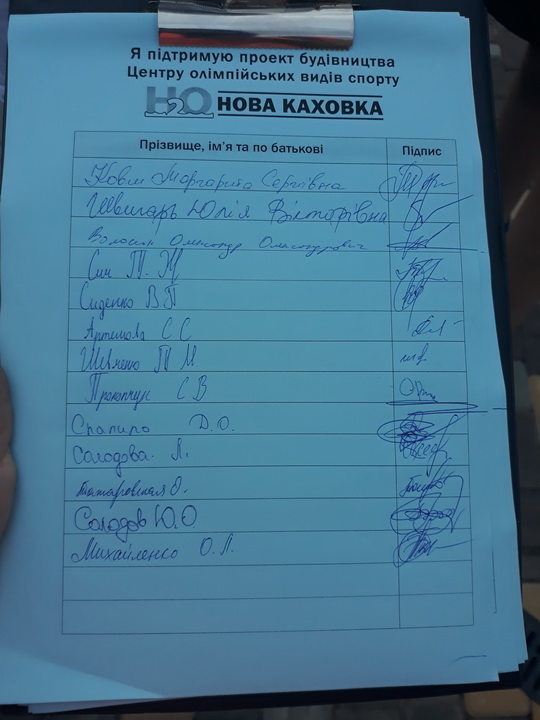 Я підтримую проект будівництва
Центру олімпійських видів спорту
Н2О НОВА КАХОВКА
Прізвище, ім'я та по батькові Підпис
Маргарита Сергіївна
Юлія Вікторівна
Волосин Олександр Олександрович
Син Т. Ж
Сиденко В П
Артемова С С
Шевченко Т М.
Прокопчук С В
Спапиро Д.О.
Солодова. Л.
Татаровская О.
Солодов Ю.О
Михайленко О.Л.